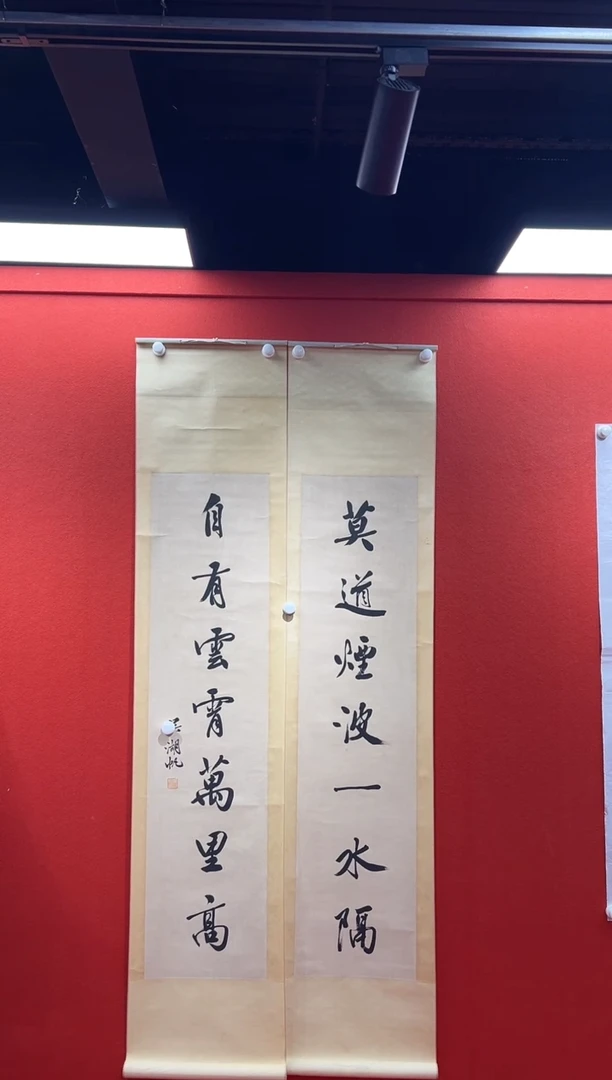 莫道煙波一水隔
自有雲霄萬里高
湖帆